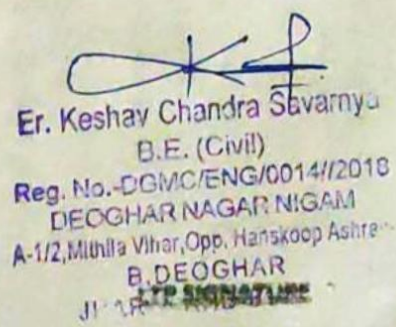 Er. Keshav Chandra Savarnya
B.E. (Civil)
Reg. No.-DGMC/ENG/0014//2018
DEOGHAR NAGAR NIGAM
A-1/2,Mithila Vihar,Opp. Hanskoop Ashra
B.DEOGHAR
LTP SIGNATURE